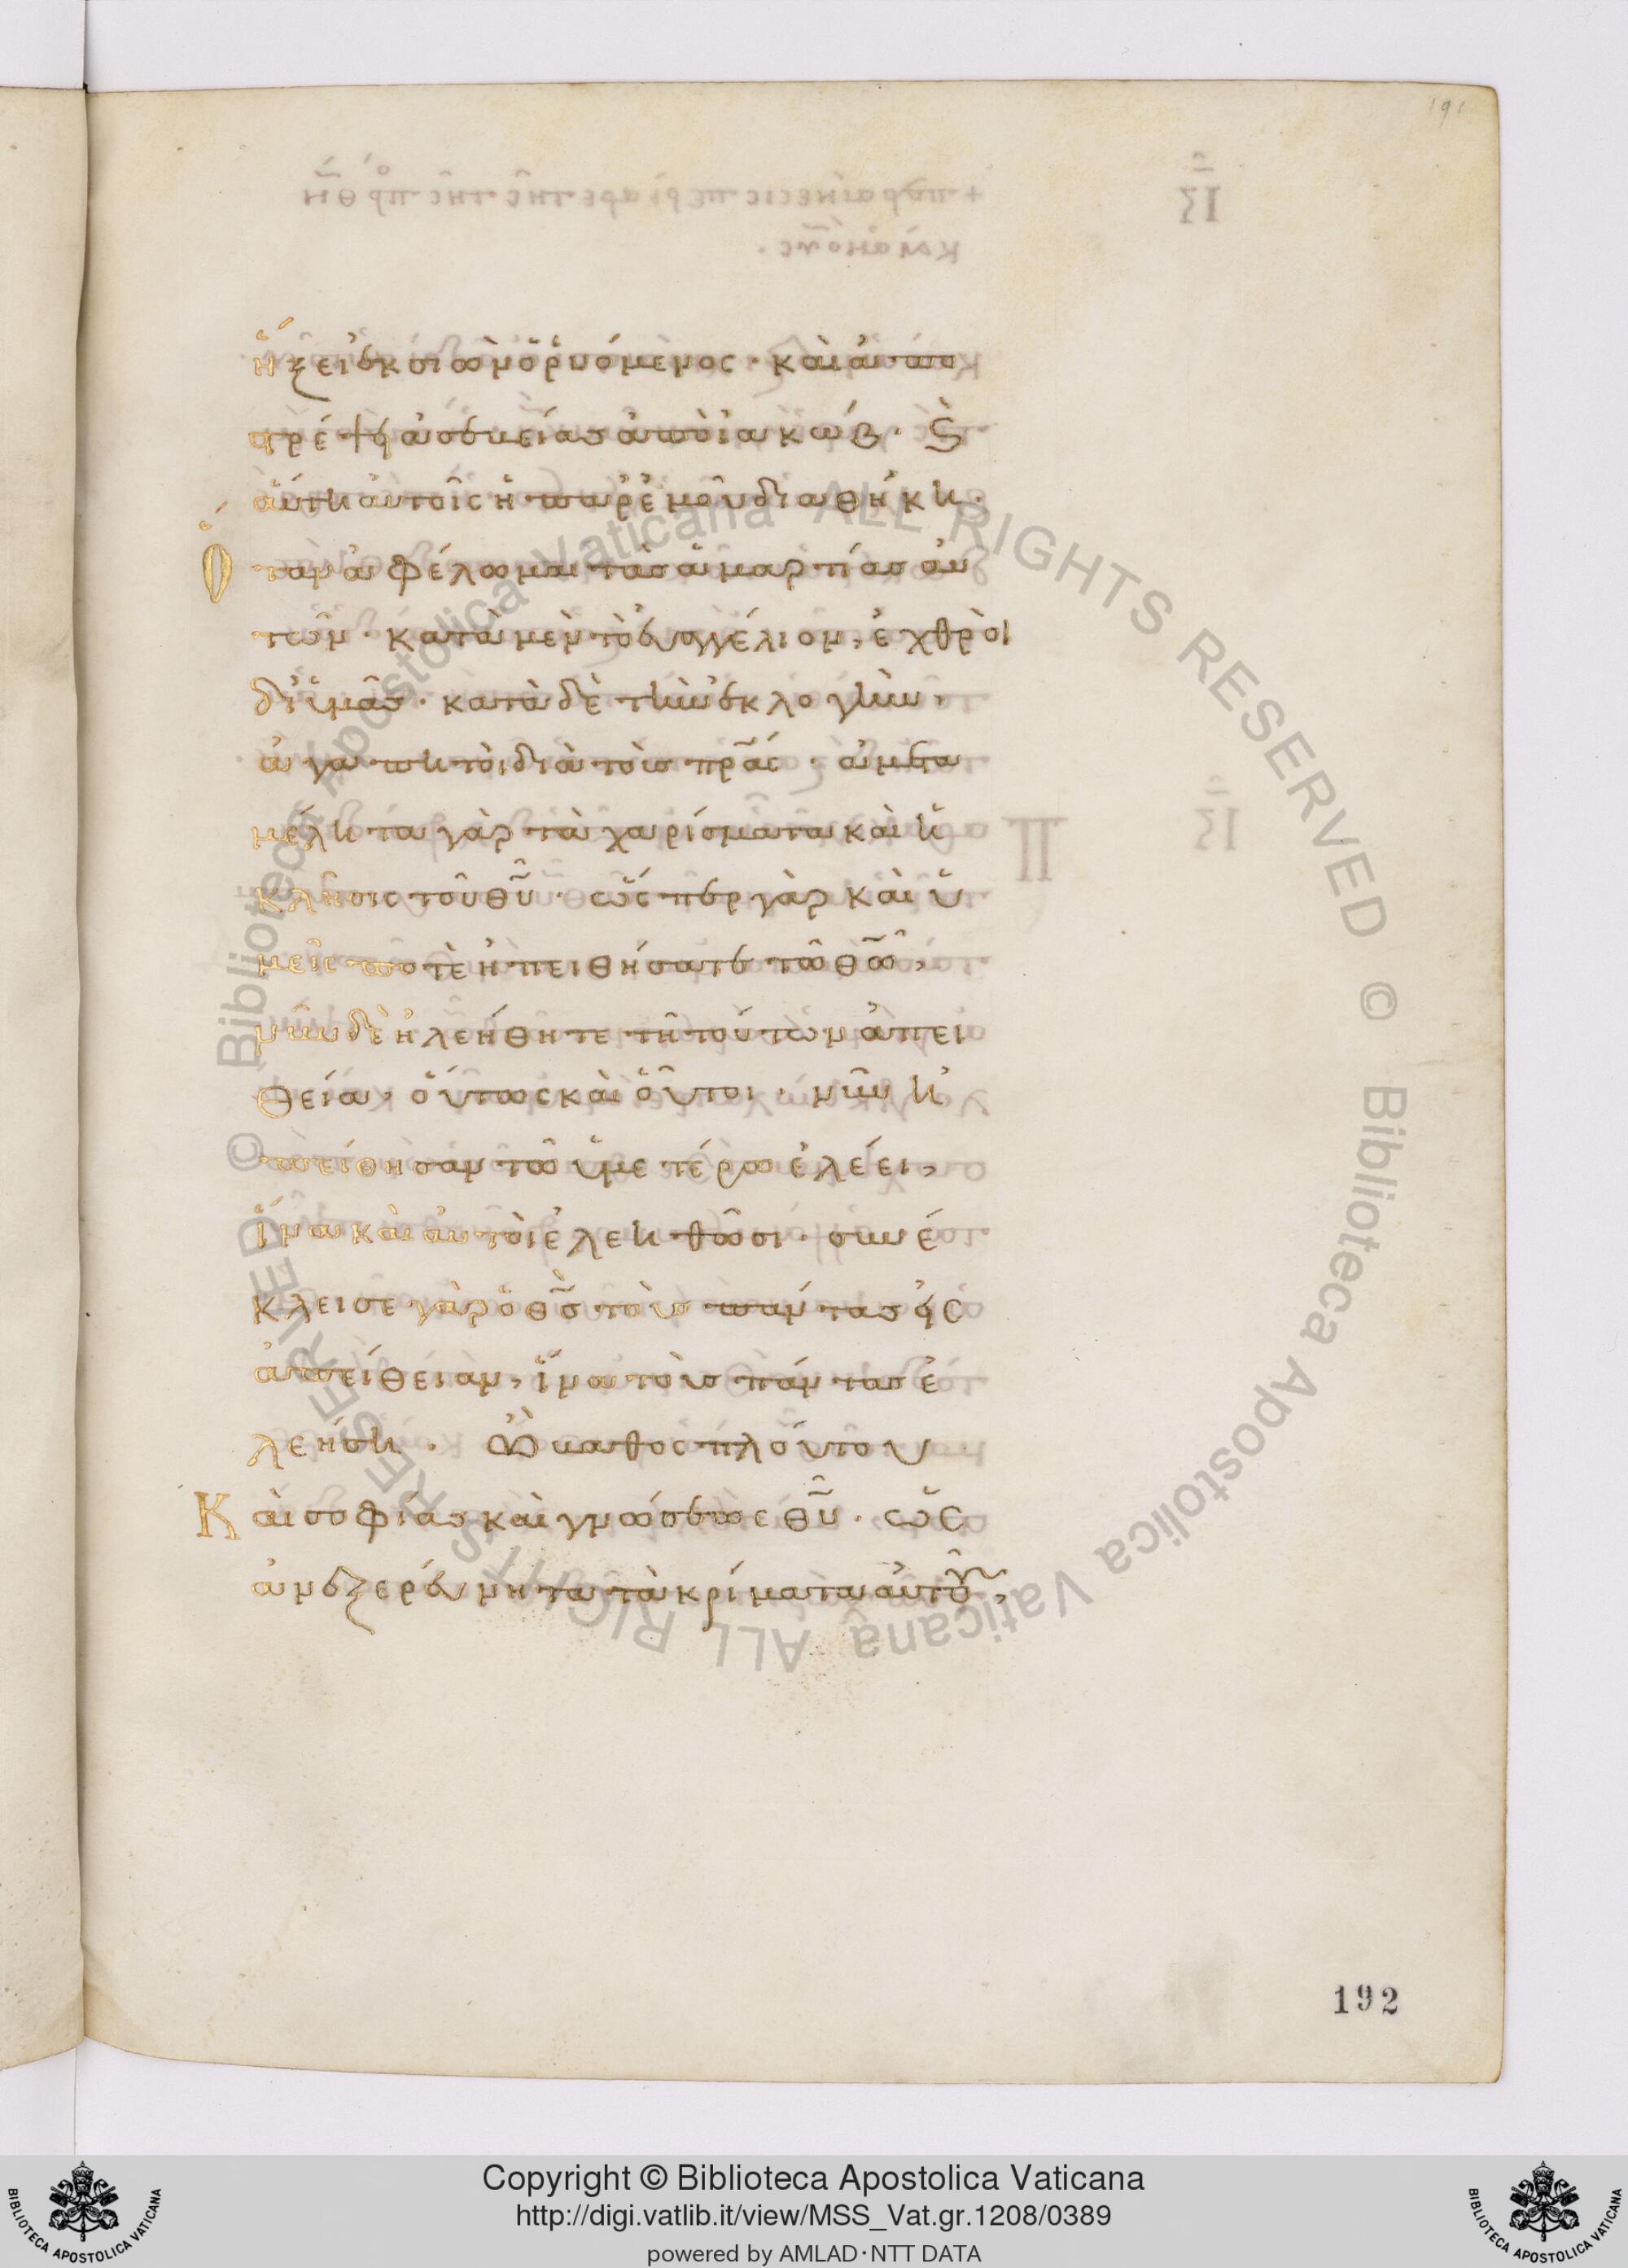 191
ἥξει ἐκ σιὼν ὁ ῥυόμενος · καὶ ἀπο
στρέψει ἀσεβείας ἀπὸ ἰακώβ · Καὶ
αὕτη αὐτοῖς ἡ παρ' ἐμοῦ διαθήκη ·
Ὅταν ἀφέλωμαι τὰς ἁμαρτίας αὐ
τῶν · κατὰ μὲν τὸ εὐαγγέλιον, ἐχθροὶ
δι' ὑμᾶς · κατὰ δὲ τὴν ἐκλογὴν,
ἀγαπητοὶ διὰ τοὺς πρ̅ας · ἀμετα
μέλητα γὰρ τὰ χαρίσματα καὶ ἡ
κλῆσις τοῦ θ̅υ · ὥσπερ γὰρ καὶ ὑ
μεῖς ποτὲ ἠπειθήσατε τῶ θ̅ω,
νῦν δὲ ἠλεήθητε τῆ τούτων ἀπει
θεία, οὕτως καὶ οὗτοι · νῦν ἠ
πείθησαν τῶ ὑμετέρω ἐλέει,
ἵνα καὶ αὐτοὶ ἐλεηθῶσι · συνέ
κλεισε γὰρ ὁ θ̅ς τοὺς πάντας εἰς
ἀπείθειαν, ἵνα τοὺς πάντας ἐ
λεήση · Ὢ βάθος πλούτου
Καὶ σοφίας καὶ γνώσεως θ̅υ · ὡς
ἀνεξερεύνητα τὰ κρίματα αὐτοῦ,
192
© Biblioteca Apostolica Vaticana ALL RIGHTS RESERVED © Biblioteca Apostolica Vaticana ALL RIGHTS RESERVED
Copyright © Biblioteca Apostolica Vaticana
http://digi.vatlib.it/view/MSS_Vat.gr.1208/0389
powered by AMLAD·NTT DATA
BIBLIOTECA APOSTOLICA VATICANA
BIBLIOTECA APOSTOLICA VATICANA